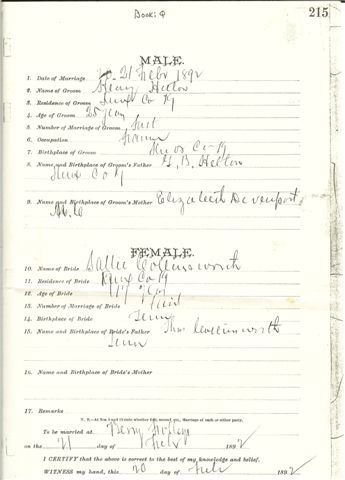 Book: 9
215
MALE.
1. Date of Marriage 21 Feby 1892
2. Name of Groom Henry Helton
3. Residence of Groom Knox Co Ky
4. Age of Groom 25 years
5. Number of Marriage of Groom first
6. Occupation Farmer
7. Birthplace of Groom Knox Co Ky
8. Name and Birthplace of Groom's Father B. Helton
Knox Co Ky
9. Name and Birthplace of Groom's Mother Elizabeth Devenport
N.C
FEMALE.
10. Name of Bride Sallie Collinsworth
11. Residence of Bride Knox Co Ky
12. Age of Bride
13. Number of Marriage of Bride First
14. Birthplace of Bride Tenn
15. Name and Birthplace of Bride's Father Thos Collinsworth
Tenn
16. Name and Birthplace of Bride's Mother
17. Remarks
N. B.—At Nos. 5 and 13 state whether first, second, etc., Marriage of each or either party.
To be married at
on the 21 day of Feby 1892
I CERTIFY that the above is correct to the best of my knowledge and belief.
WITNESS my hand, this 20 day of Feby 1892